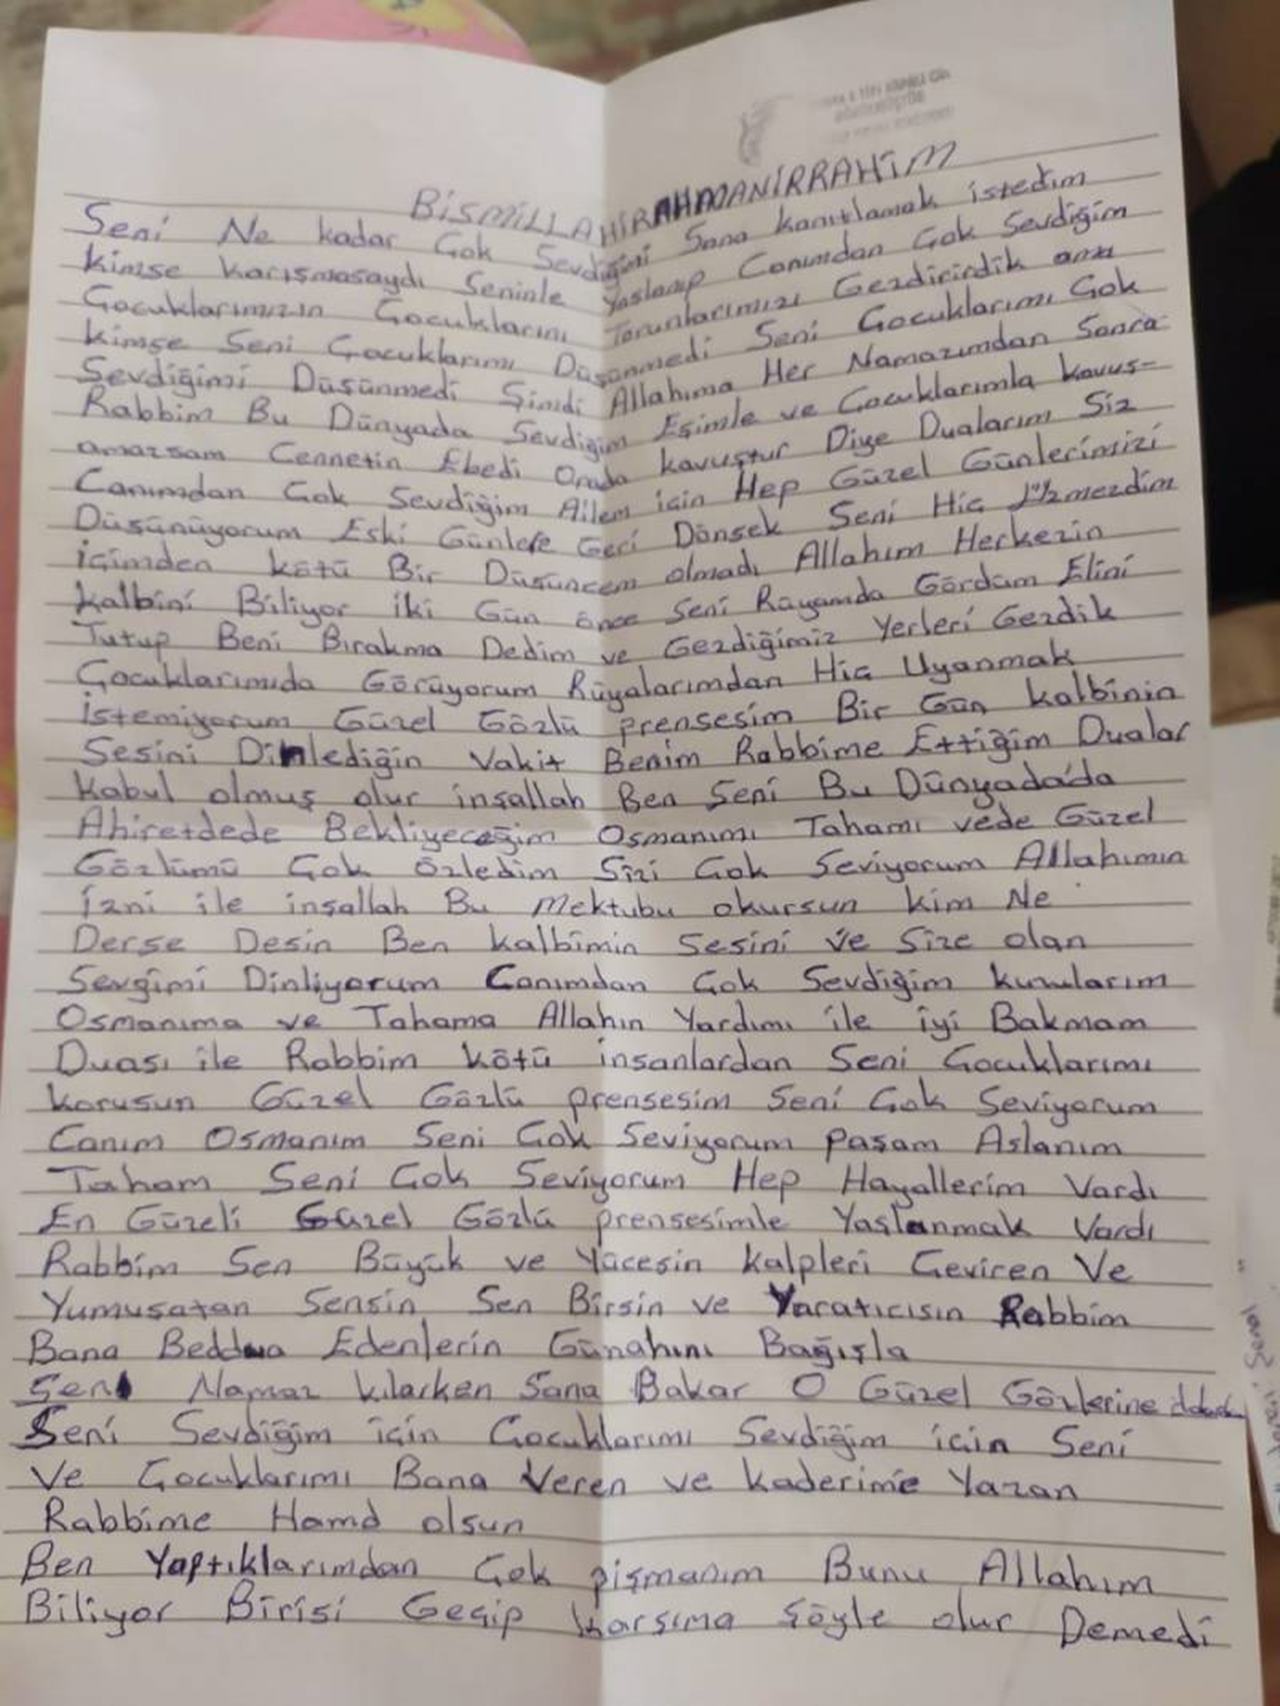 BİSMİLLAHİRAHMANİRRAHİM
Seni Ne kadar Çok Sevdiğimi Sana kanıtlamak istedim
kimse karışmasaydı Seninle Yaslanıp Canımdan Çok Sevdiğim
Çocuklarımızın Çocuklarını Torunlarımızı Gezdirirdik ama
kimse Seni Çocuklarımı Düşünmedi Seni Çocuklarımı Çok
Sevdiğimi Düşünmedi Şimdi Allahıma Her Namazımdan Sonra
Rabbim Bu Dünyada Sevdiğim Eşimle ve Çocuklarımla kavuş-
amazsam Cennetin Ebedi Orada kavuştur Diye Dualarım Siz
Canımdan Çok Sevdiğim Ailem için Hep Güzel Günlerimizi
Düşünüyorum Eski Günlere Geri Dönsek Seni Hiç Üzmezdim
içimden kötü Bir Düşüncem olmadı Allahım Herkezin
kalbini Biliyor iki Gün önce Seni Rüyamda Gördüm Elini
Tutup Beni Bırakma Dedim ve Gezdiğimiz Yerleri Gezdik
Çocuklarımıda Görüyorum Rüyalarımdan Hiç Uyanmak
istemiyorum Güzel Gözlü prensesim Bir Gün kalbinin
Sesini Dinlediğin Vakit Benim Rabbime Ettiğim Dualar
kabul olmuş olur inşallah Ben Seni Bu Dünyada'da
Ahiretdede Bekliyeceğim Osmanımı Tahamı vede Güzel
Gözlümü Çok özledim Sizi Çok Seviyorum Allahımın
izni ile inşallah Bu Mektubu okursun kim Ne
Derse Desin Ben kalbimin Sesini ve Size olan
Sevgimi Dinliyorum Canımdan Çok Sevdiğim kuzularım
Osmanıma ve Tahama Allahın Yardımı ile iyi Bakmam
Duası ile Rabbim kötü insanlardan Seni Çocuklarımı
korusun Güzel Gözlü prensesim Seni Çok Seviyorum
Canım Osmanım Seni Çok Seviyorum paşam Aslanım
Taham Seni Çok Seviyorum Hep Hayallerim Vardı
En Güzeli Güzel Gözlü prensesimle Yaslanmak Vardı
Rabbim Sen Büyük ve Yücesin kalpleri Çeviren Ve
Yumuşatan Sensin Sen Birsin ve Yaratıcısın Rabbim
Bana Beddua Edenlerin Günahını Bağışla
Seni Namaz kılarken Sana Bakar O Güzel Gözlerine
Seni Sevdiğim için Çocuklarımı Sevdiğim için Seni
Ve Çocuklarımı Bana Veren ve kaderime Yazan
Rabbime Hamd olsun
Ben Yaptıklarımdan Çok pişmanım Bunu Allahım
Biliyor Birisi Geçip karşıma Şöyle olur Demedi